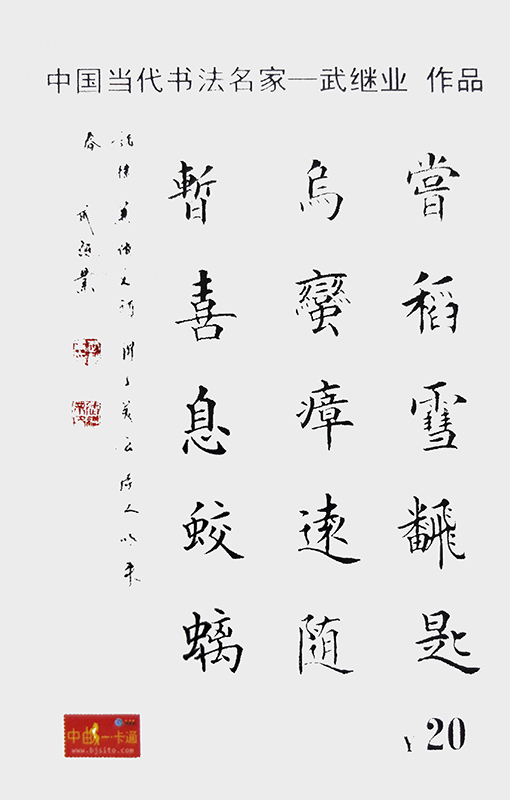 中国当代书法名家—武继业 作品
嘗稻雪飜匙
烏蠻瘴遠随
暫喜息蛟螭
春 武继業
中曲一卡通
www.bjsito.com
20